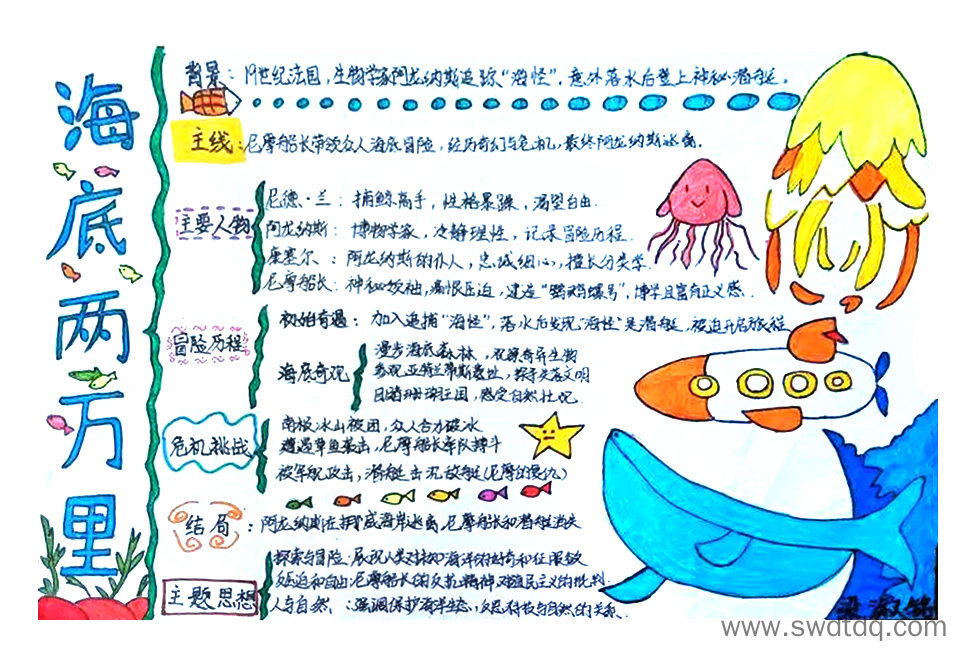 海底两万里
背景：19世纪法国，生物学家阿龙纳斯追踪“海怪”，意外落水后登上神秘潜艇。
主线：尼摩船长带领众人海底冒险，经历奇幻与危机，最终阿龙纳斯逃离。
主要人物
尼德·兰：捕鲸高手，性格暴躁，渴望自由.
阿龙纳斯：博物学家，冷静理性，记录冒险历程.
康塞尔：阿龙纳斯的仆人，忠诚细心，擅长分类学.
尼摩船长：神秘 痛恨压迫，建造“鹦鹉螺号”，博学且富有正义感.
冒险历程
初始奇遇：加入追捕“海怪”，落水后发现“海怪”是潜艇，被迫开启旅程
海底奇观
漫步海底森林，观察奇异生物
参观亚特兰蒂斯遗址，探寻失落文明
目睹珊瑚王国，感受自然壮观.
危机挑战
南极冰山被困，众人合力破冰
遭遇章鱼袭击，尼摩船长率队搏斗
被军舰攻击，潜艇击沉敌艇(尼摩的复仇)
结局：阿龙纳斯在挪威海岸逃离，尼摩船长和潜艇消失
主题思想
探索与冒险·展现人类对 海洋的好奇和征服欲
压迫和自由·尼摩船长的反抗精神 对殖民主义的批判.
人与自然：强调保护海洋生态，反思科技与自然的关系.
梁
www.swdtdq.com